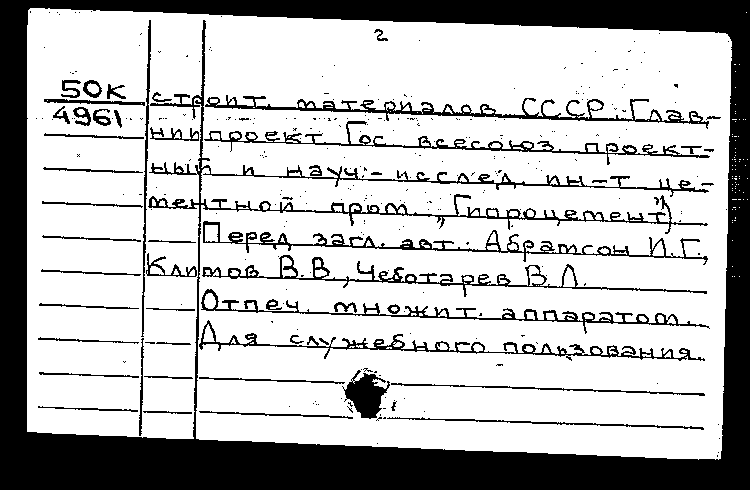 2
50К
4961
строит. материалов СССР. Глав-
ниипроект. Гос. всесоюз. проект-
ный и науч.-исслед. ин-т це-
ментной пром. „Гипроцемент").
Перед загл. авт.: Абрамсон И.Г.,
Климов В.В., Чеботарев В.Л.
Отпеч. множит. аппаратом.
Для служебного пользования.